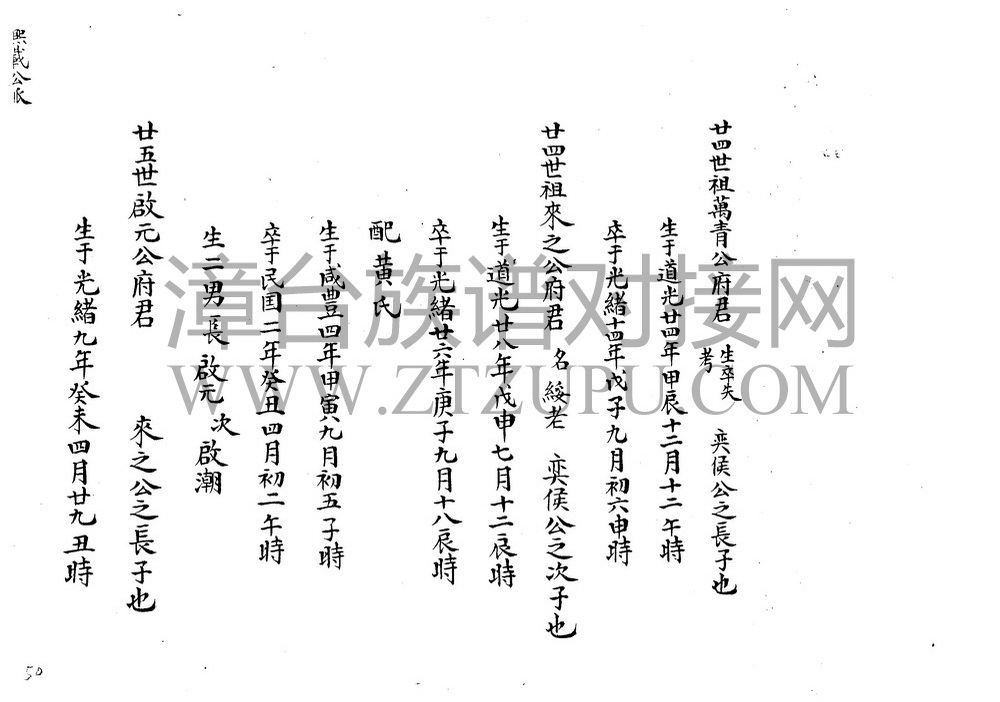 廿四世祖萬青公府君 生卒失考 奕侯公之長子也
生于道光廿四年甲辰十二月十二午時
卒于光緒十四年戊子九月初六申時
廿四世祖來之公府君 名綏老 奕侯公之次子也
生于道光廿八年戊申七月十二辰時
卒于光緒廿六年庚子九月十八辰時
配黃氏
生于咸豊四年甲寅九月初五子時
卒于民国二年癸丑四月初二午時
生二男長啟元 次啟潮
廿五世啟元公府君 來之公之長子也
生于光緒九年癸未四月廿九丑時
熙載公派
50
漳台族谱对接网
WWW.ZTZUPU.COM